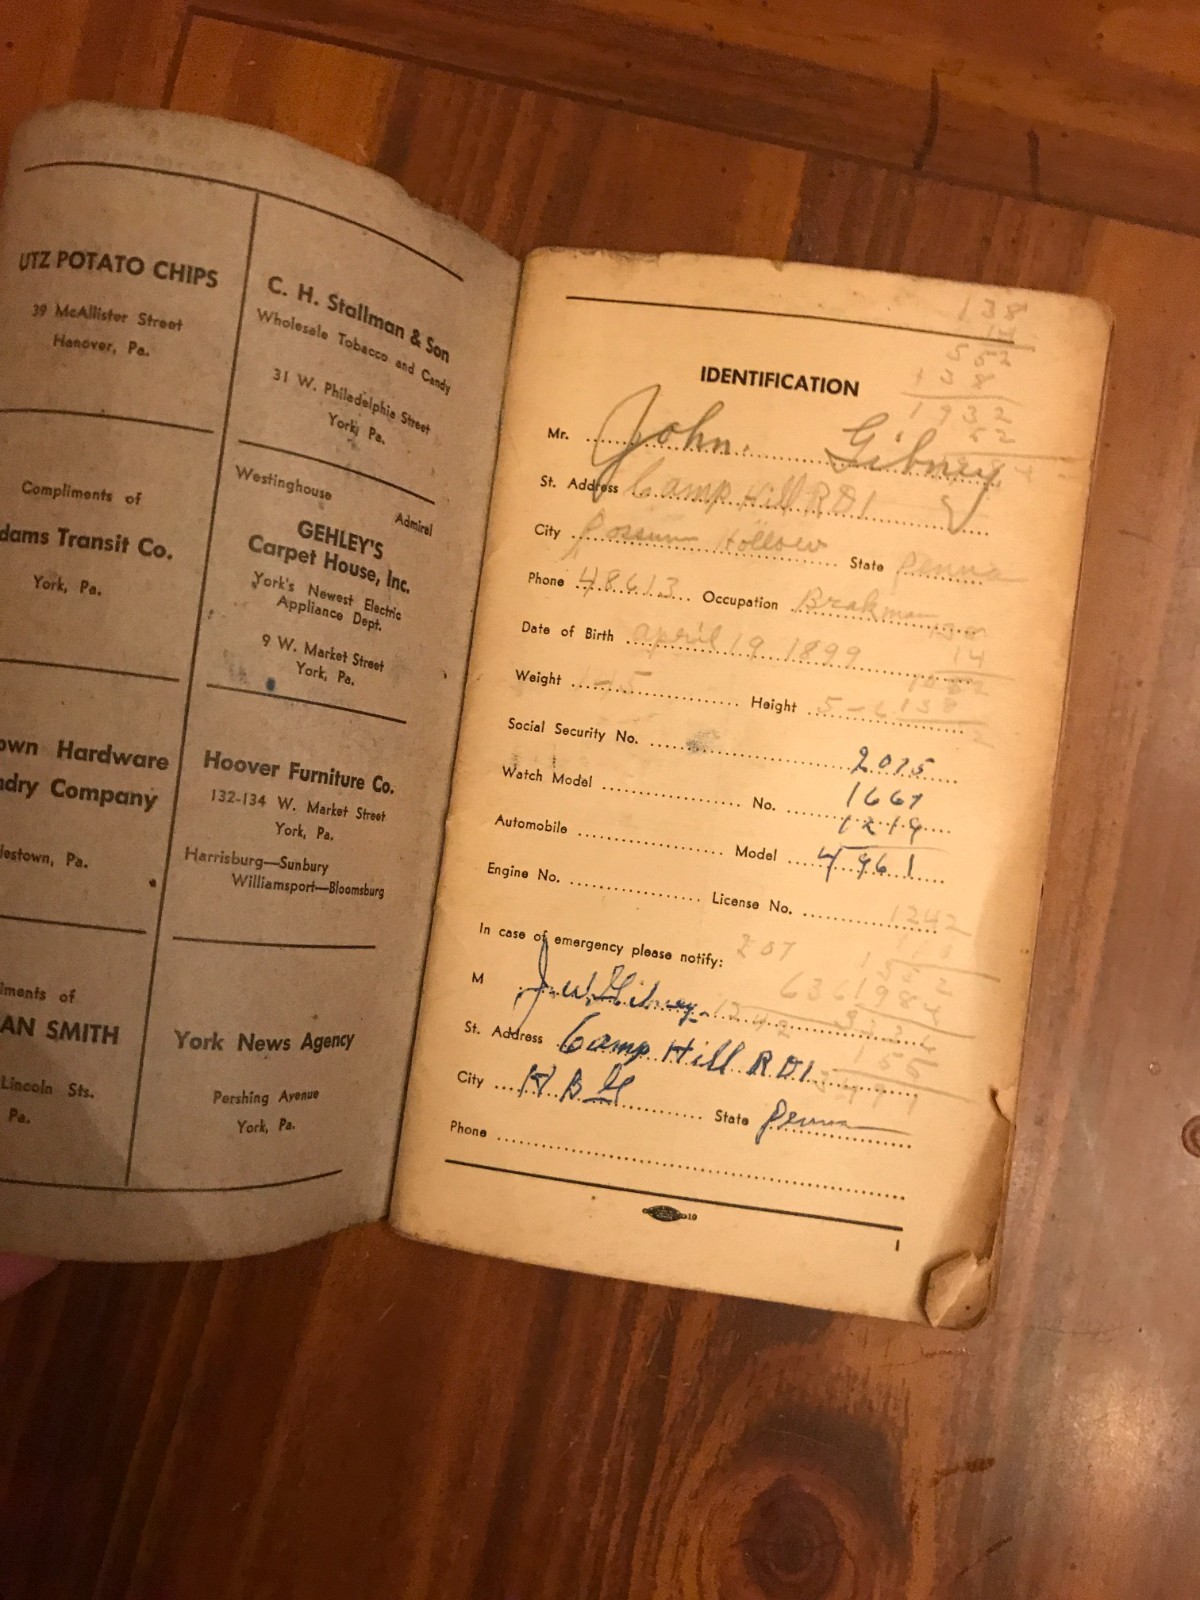 UTZ POTATO CHIPS
39 McAllister Street
Hanover, Pa.
Compliments of
dams Transit Co.
York, Pa.
own Hardware
ndry Company
lestown, Pa.
iments of
AN SMITH
Lincoln Sts.
Pa.
C. H. Stallman & Son
Wholesale Tobacco and Candy
31 W. Philadelphia Street
York, Pa.
Westinghouse Admirel
GEHLEY'S
Carpet House, Inc.
York's Newest Electric
Appliance Dept.
9 W. Market Street
York, Pa.
Hoover Furniture Co.
132-134 W. Market Street
York, Pa.
Harrisburg—Sunbury
Williamsport—Bloomsburg
York News Agency
Pershing Avenue
York, Pa.
138
14
552
138
1932
52
IDENTIFICATION
Mr. John. Gibney
St. Address Camp Hill RD1
City Possum Hollow State Penna
Phone 48613 Occupation Brakman
Date of Birth april 19 1899
14
Weight Height 5-6
138
Social Security No. 2075
Watch Model No. 1667
1219
Automobile Model 4961
Engine No. License No.
1242
In case of emergency please notify: 207
M J.W. Gibney
St. Address Camp Hill RD1
City H B G State Penna
Phone
19
1